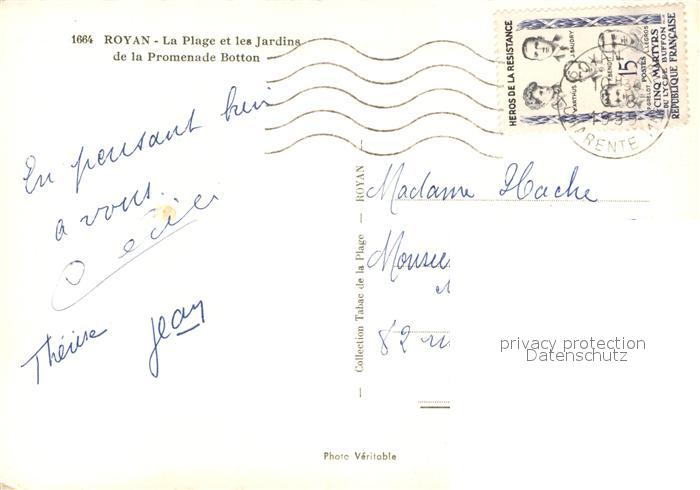 1664 ROYAN - La Plage et les Jardins
de la Promenade Botton
En pensant bien
a vous.
Cécile
Thérèse Jean
Photo Véritable
Collection Tabac de la Plage — ROYAN —
HEROS DE LA RESISTANCE
J. BAUDRY
P. BENOIT
L. LEGROS
15F
POSTES
CINQ MARTYRS
DU LYCEE BUFFON
REPUBLIQUE FRANÇAISE
Madame Hache
82
privacy protection
Datenschutz